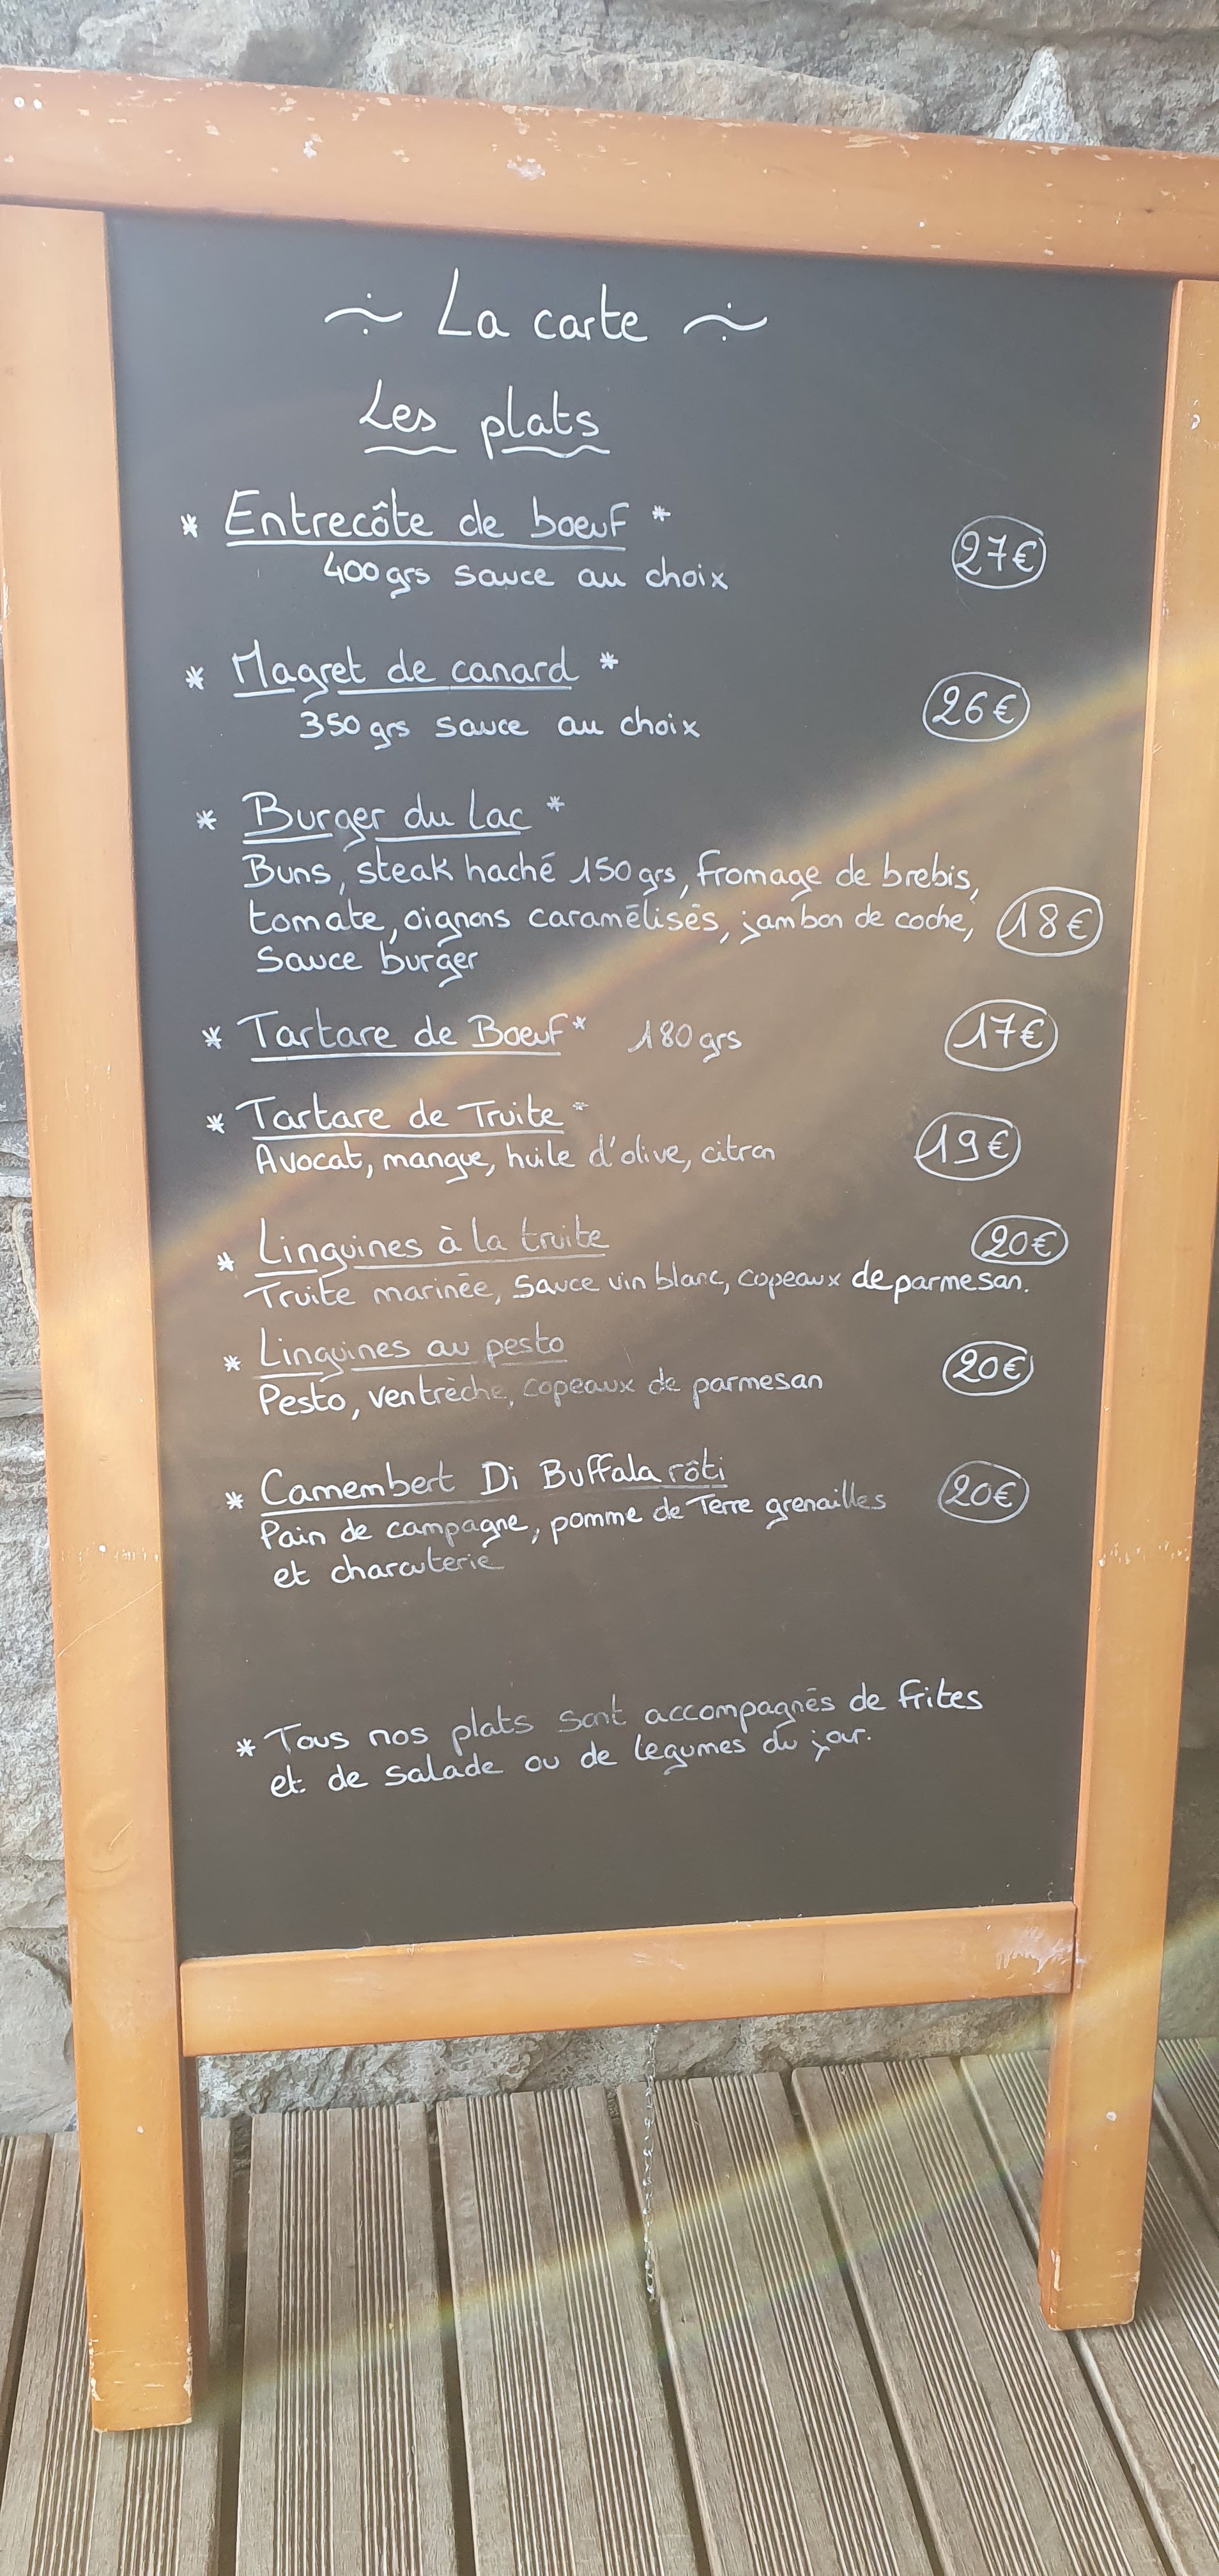 ~ La carte ~
Les plats
* Entrecôte de boeuf *
400grs sauce au choix
27€
* Magret de canard *
350grs sauce au choix
26€
* Burger du Lac *
Buns, steak haché 150grs, fromage de brebis,
tomate, oignons caramélisés, jambon de coche, 18€
Sauce burger
* Tartare de Boeuf * 180grs 17€
* Tartare de Truite *
Avocat, mangue, huile d'olive, citron 19€
* Linguines à la truite 20€
Truite marinée, Sauce vin blanc, copeaux de parmesan.
* Linguines au pesto
Pesto, ventrèche, copeaux de parmesan 20€
* Camembert Di Buffala rôti
Pain de campagne, pomme de Terre grenailles 20€
et charcuterie
* Tous nos plats sont accompagnés de frites
et de salade ou de legumes du jour.